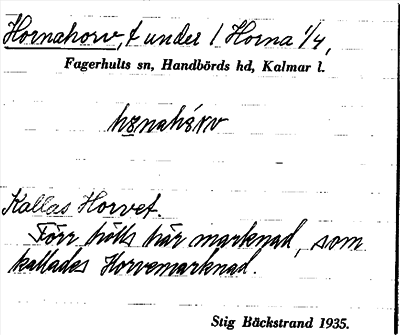 Hornahorv, t under 1 Horna 1/4,
Fagerhults sn, Handbörds hd, Kalmar l.
Kallas Horvet.
Förr hölls här marknad, som
kallades Horvemarknad.
Stig Bäckstrand 1935.